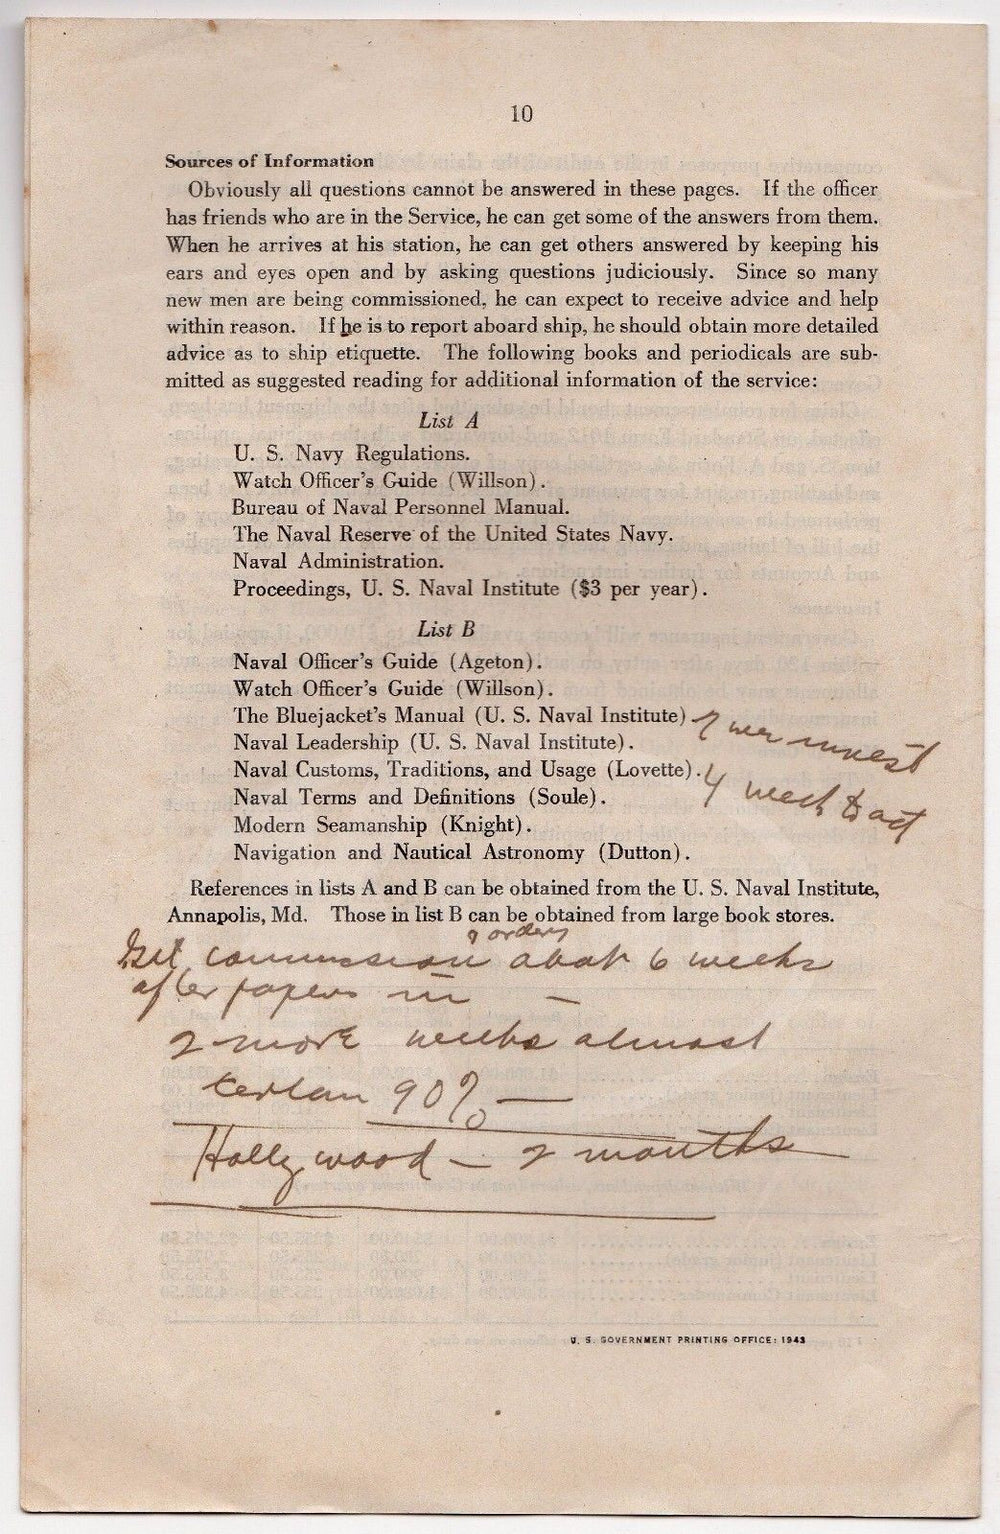 10
Sources of Information
Obviously all questions cannot be answered in these pages. If the officer
has friends who are in the Service, he can get some of the answers from them.
When he arrives at his station, he can get others answered by keeping his
ears and eyes open and by asking questions judiciously. Since so many
new men are being commissioned, he can expect to receive advice and help
within reason. If he is to report aboard ship, he should obtain more detailed
advice as to ship etiquette. The following books and periodicals are sub-
mitted as suggested reading for additional information of the service:
List A
U. S. Navy Regulations.
Watch Officer's Guide (Willson).
Bureau of Naval Personnel Manual.
The Naval Reserve of the United States Navy.
Naval Administration.
Proceedings, U. S. Naval Institute ($3 per year).
List B
Naval Officer's Guide (Ageton).
Watch Officer's Guide (Willson).
The Bluejacket's Manual (U. S. Naval Institute) 2 invest
Naval Leadership (U. S. Naval Institute).
Naval Customs, Traditions, and Usage (Lovette). 4 week to act
Naval Terms and Definitions (Soule).
Modern Seamanship (Knight).
Navigation and Nautical Astronomy (Dutton).
References in lists A and B can be obtained from the U. S. Naval Institute,
Annapolis, Md. Those in list B can be obtained from large book stores.
orders
Get commission about 6 weeks
after papers in —
2 more weeks almost
certain 90% —
Hollywood — 2 months
U. S. GOVERNMENT PRINTING OFFICE: 1943